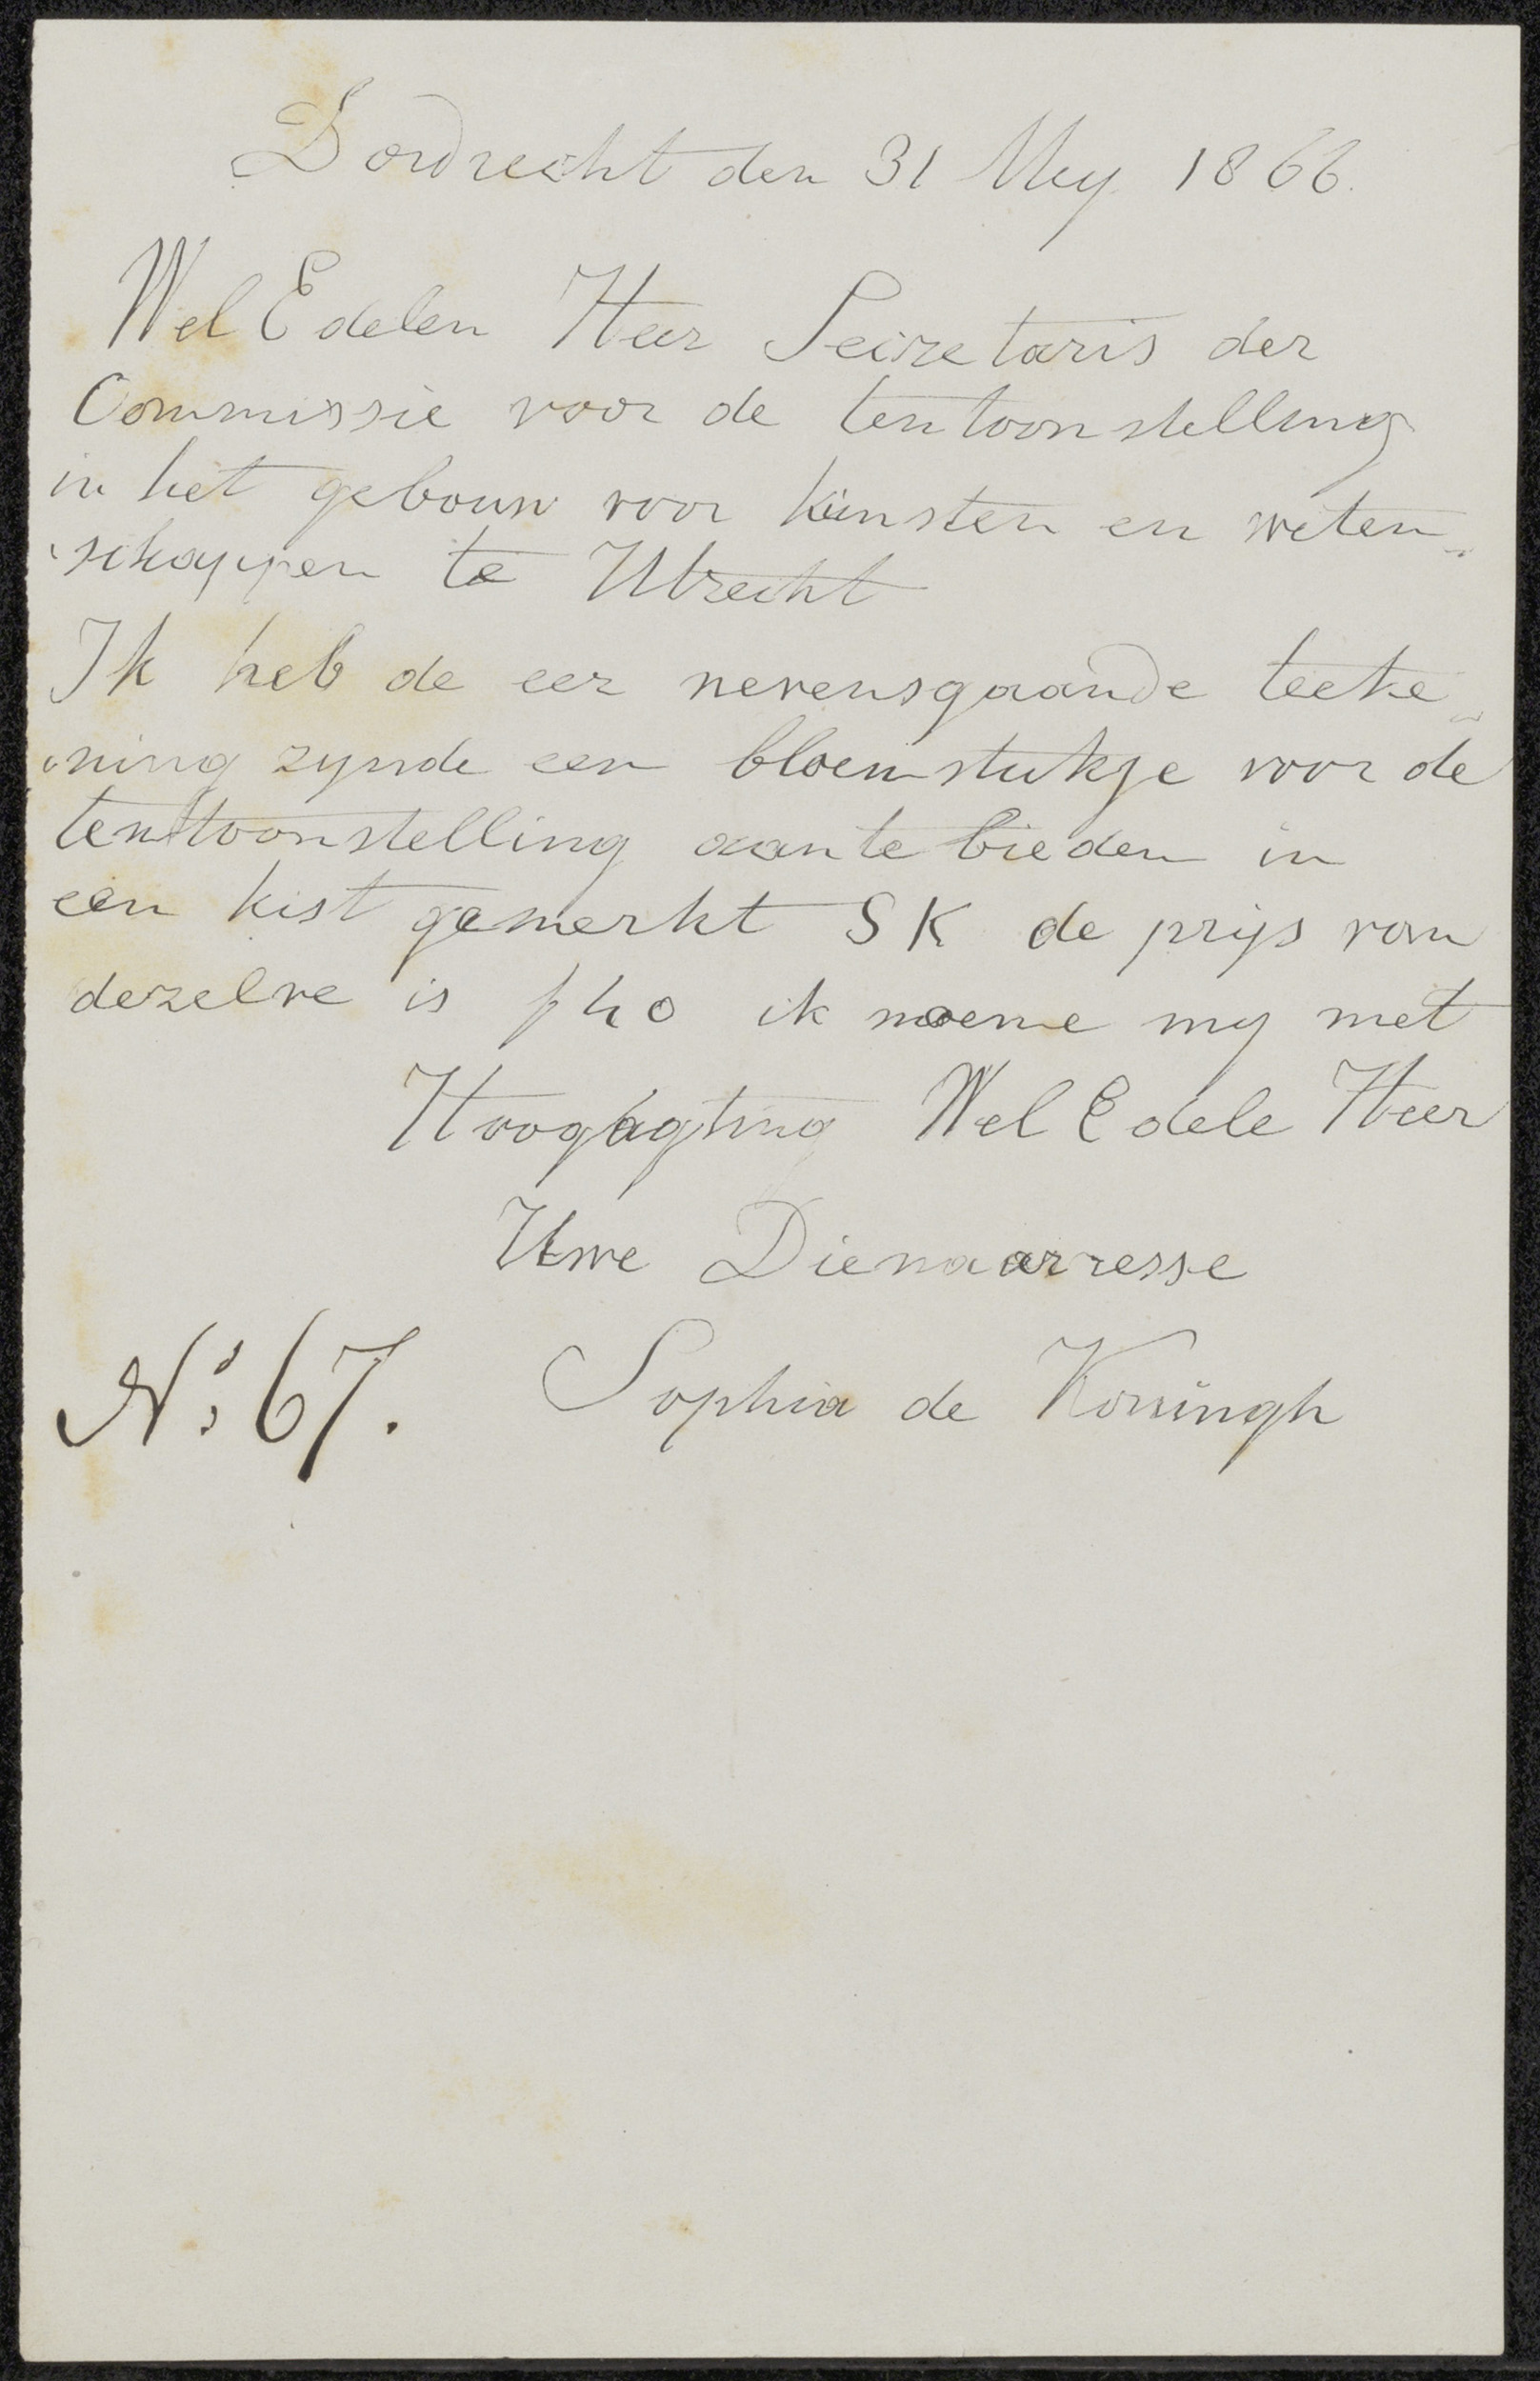 Dordrecht den 31 Mey 1866.
Wel Edelen Heer Secretaris der
Commissie voor de tentoonstelling
in het gebouw voor kunsten en weten„
„schappen te Utrecht
Ik heb de eer nevensgaande teeke„
„ning zynde een bloemstukje voor de
tenttoonstelling aante bieden in
een kist gemerkt SK de prijs van
dezelve is f 40 ik noeme my met
Hoogagting Wel Edele Heer
Uwe Dienaarresse
Sophia de Koningh
No: 67.